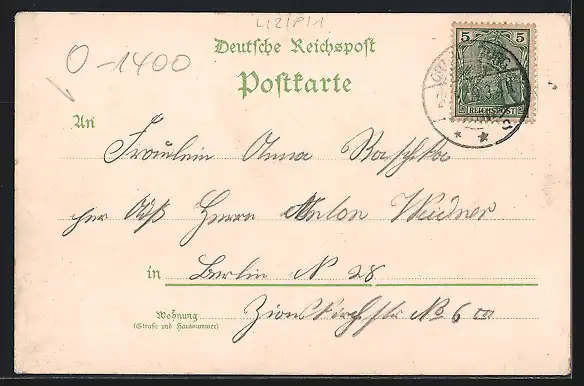 LIZIPM
O-1400
Deutsche Reichspost
Postkarte
5 5
REICHSPOST
An
Fräulein Anna Raschka
per Adß Herrn Anton Weidner
in Berlin N 28
Wohnung
(Straße und Hausnummer)
Zionskirchstr No 6 III